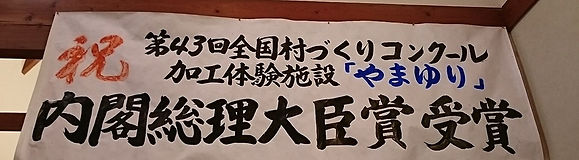 祝
第43回全国村づくりコンクール
加工体験施設「やまゆり」
内閣総理大臣賞受賞